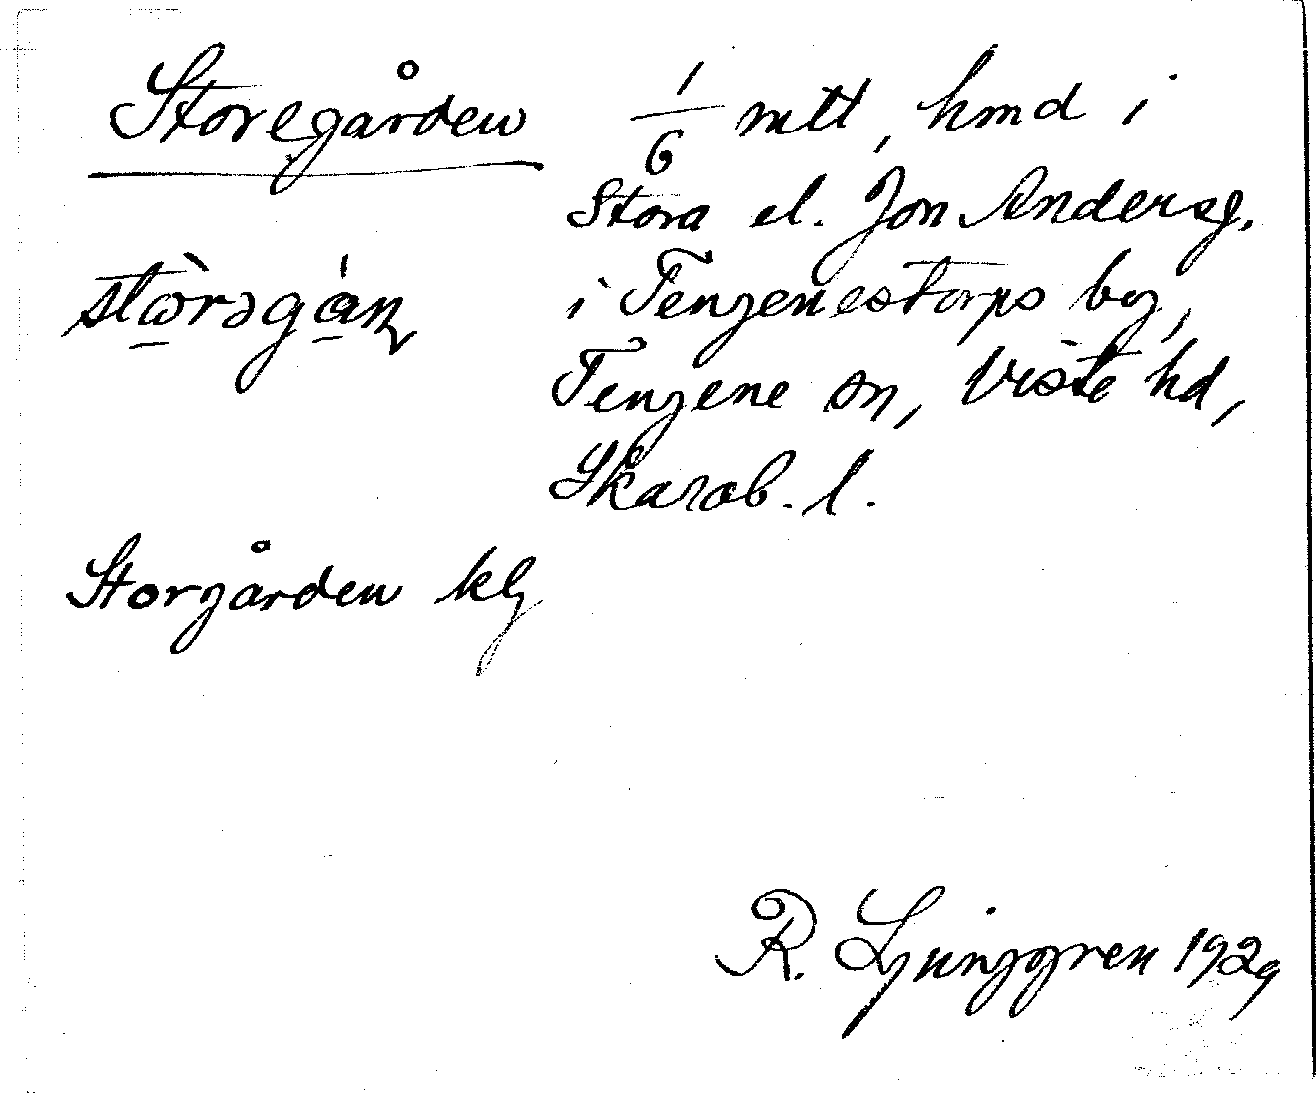 Storegården
1/6 mtl, hmd i
Stora el. Jon Andersg.
i Tengenestorps by,
Tengene sn, Viste hd,
Skarab. l.
Storgården kb
R. Ljunggren 1929